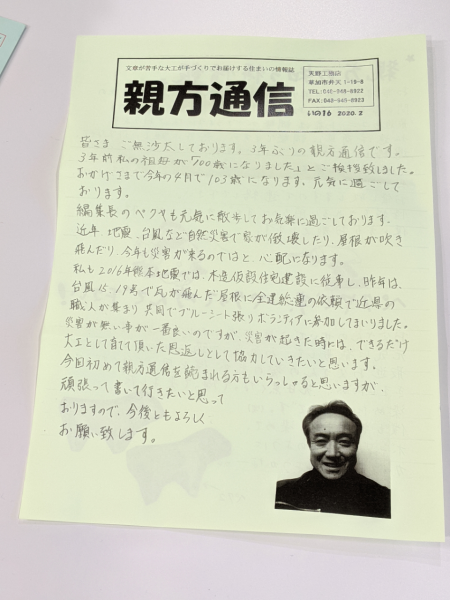 文章が苦手な大工が手づくりでお届けする住まいの情報誌
親方通信
天野工務店
草加市弁天1-19-8
TEL:042-568-6822
FAX:042-645-6923
いの16 2020.2
皆さま ご無沙太しております。3年ぶりの親方通信です。
3年前私の祖母が「100歳になりました」とご挨拶致しました。
おかげさまで今年の4月で103歳になります、元気に過ごして
おります。
編集長のペクヤも元気に散歩してお気楽に過ごしております。
近年 地震、台風など自然災害で家が倒壊したり、屋根が吹き
飛んだり、今年も災害が来るのではと、心配になります。
私も2016年熊本地震では、木造仮設住宅建設に従事し、昨年は、
台風15、19号で瓦が飛んだ屋根に全建総連の依頼で近県の
職人が集まり共同でブルーシート張りボランティアに参加してまいりました。
災害が無い事が一番良いのですが、災害が起きた時には、できるだけ
大工として育てて頂いた恩返しとして協力していきたいと思います。
今回初めて親方通信を読まれる方もいらっしゃると思いますが、
頑張って書いて行きたいと思って
おりますので、今後ともよろしく
お願い致します。